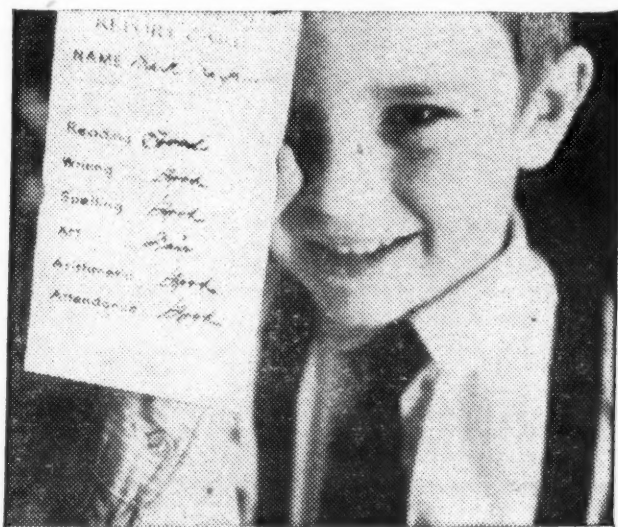 REPORT CARD
NAME
Reading Good
Writing Good
Spelling Good
Art Fair
Arithmetic Good
Attendance Good